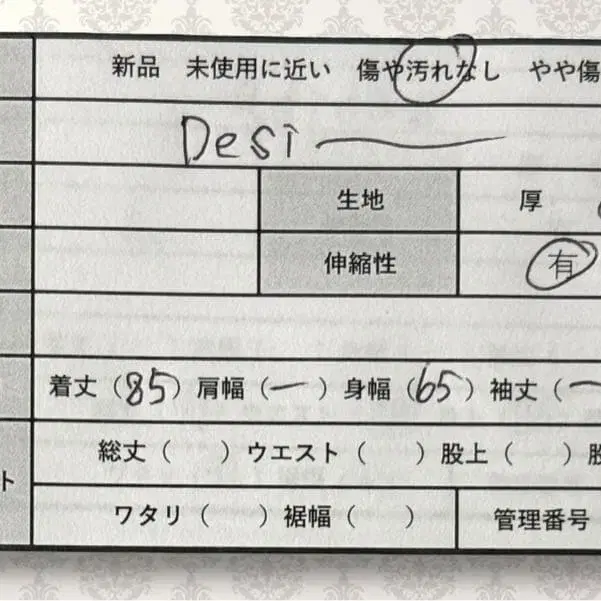 新品 未使用に近い 傷や汚れなし やや傷
Desi
生地 厚
伸縮性 有
着丈（85）肩幅（ー）身幅（65）袖丈（ー
総丈（ ）ウエスト（ ）股上（ ）股
ト
ワタリ（ ）裾幅（ ） 管理番号